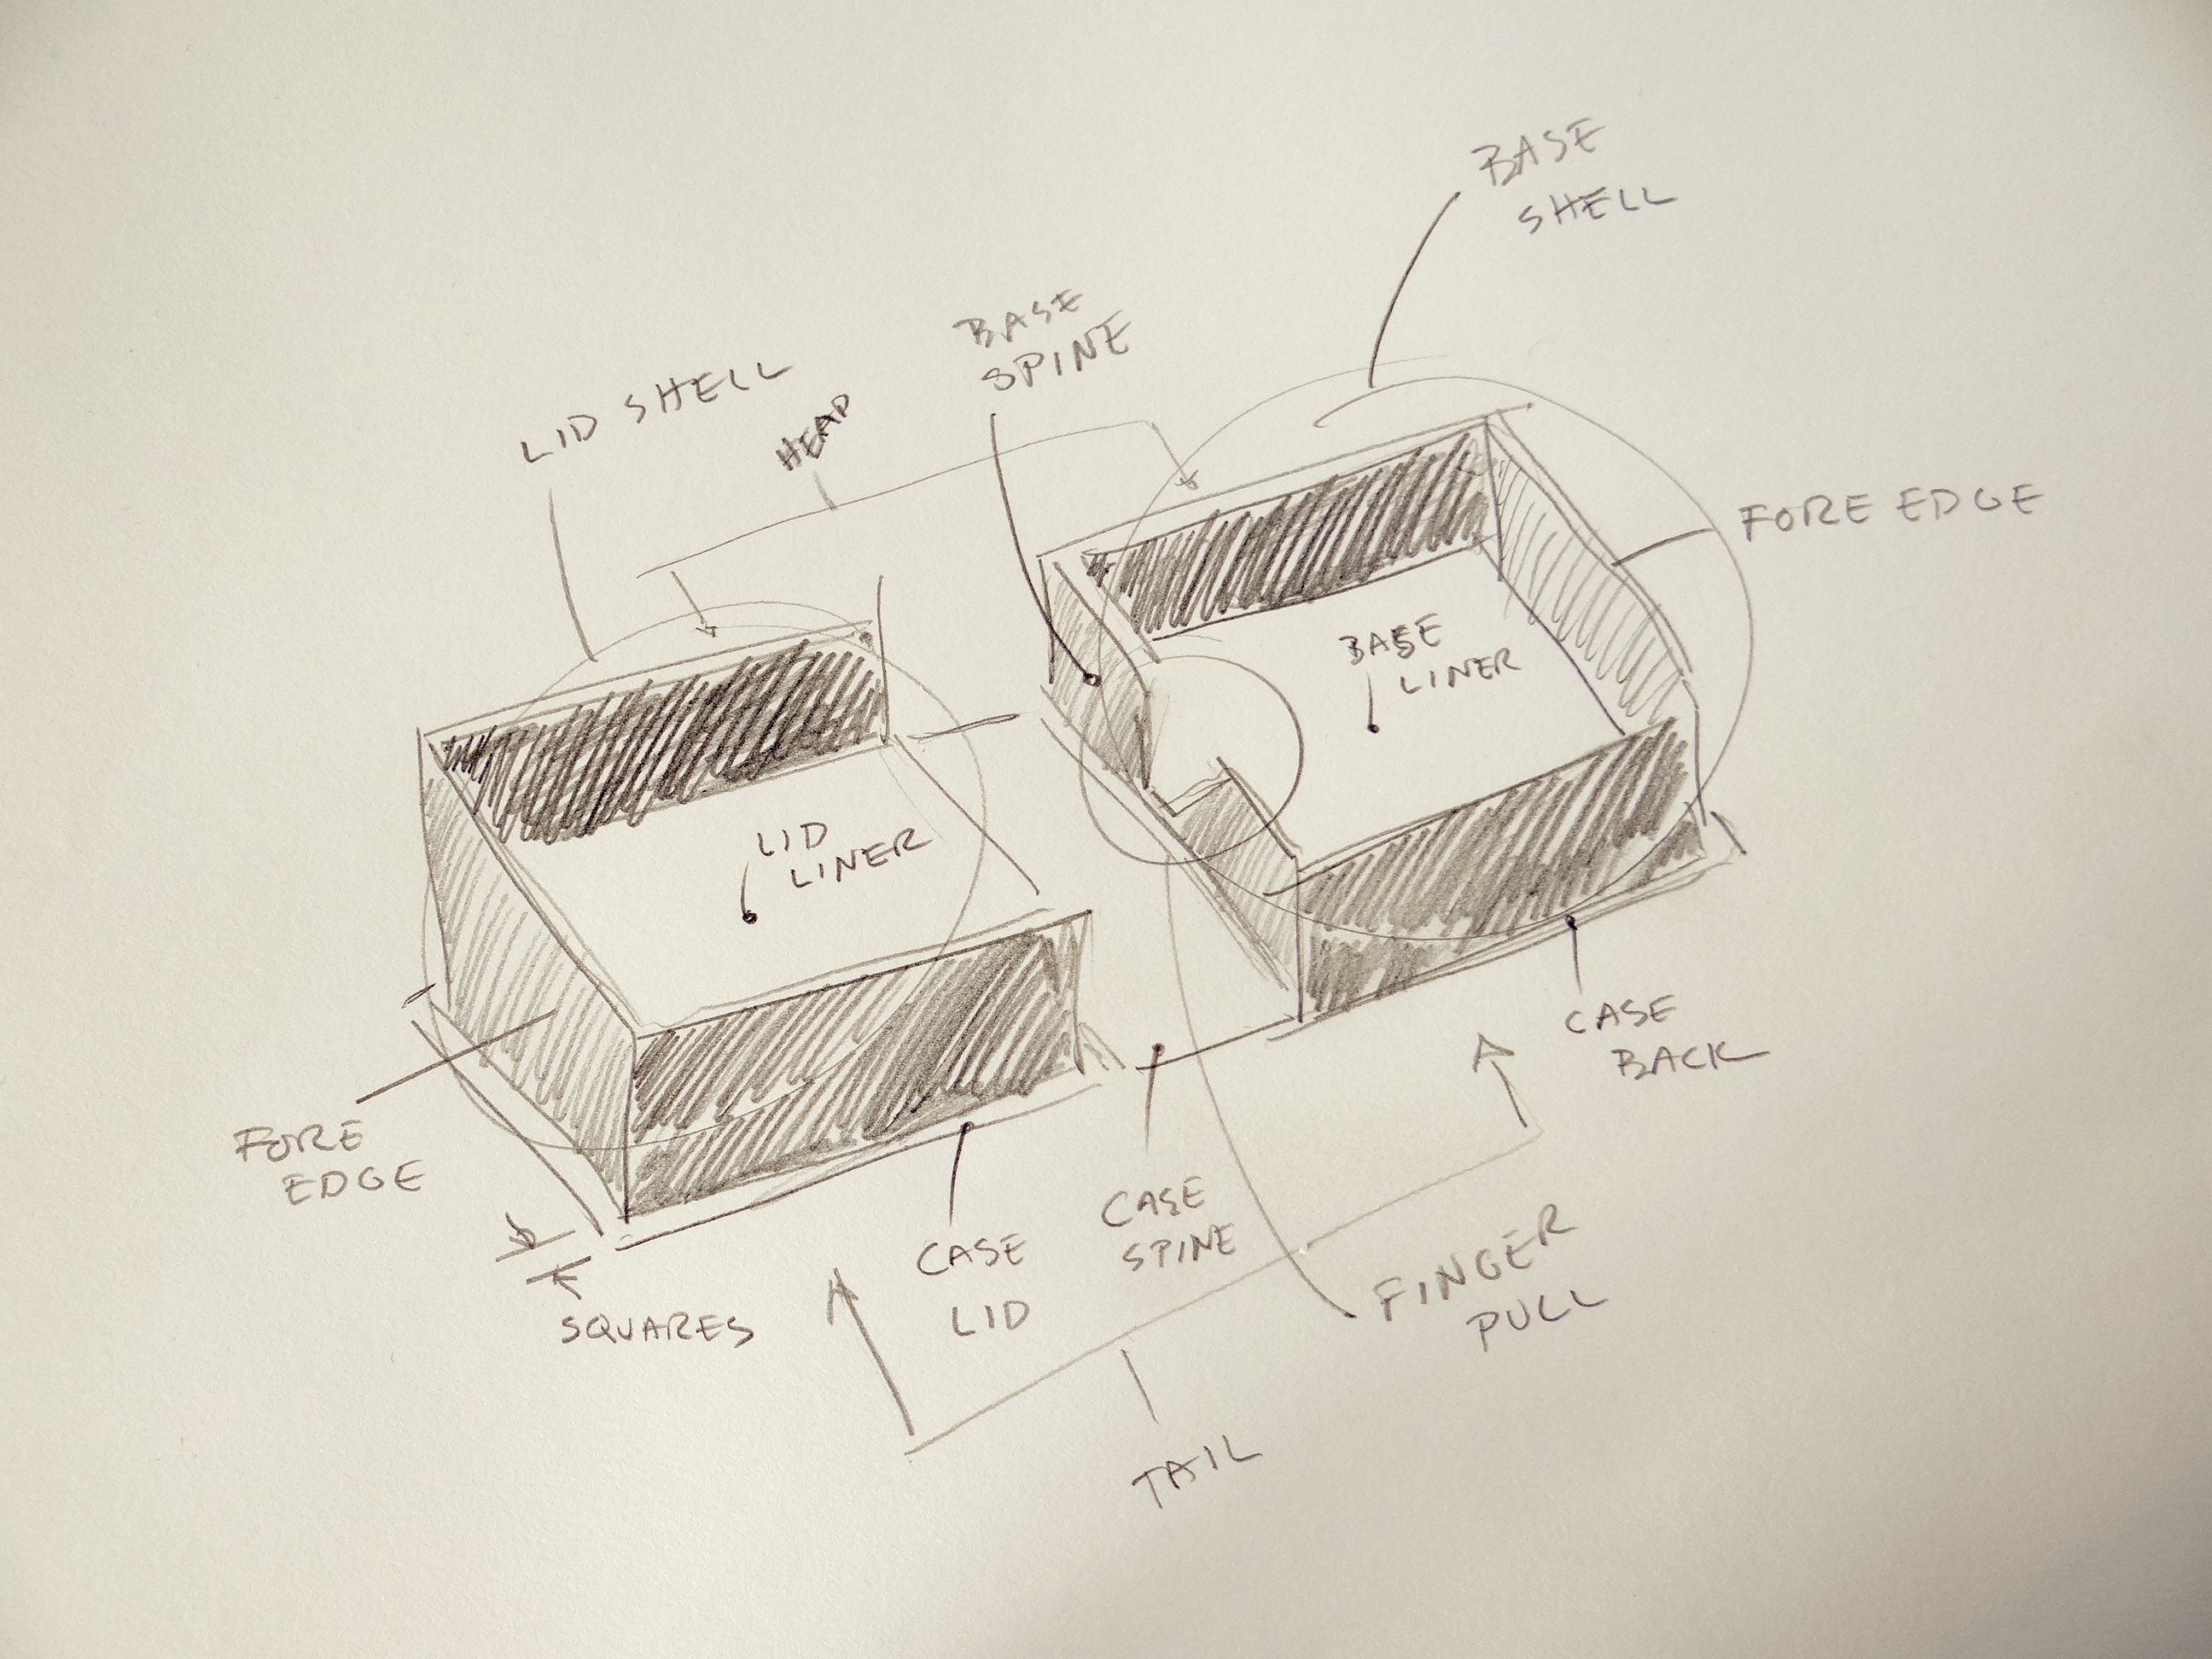 BASE
SHELL
BASE
SPINE
LID SHELL
HEAD
FORE EDGE
BASE
LINER
LID
LINER
CASE
BACK
FORE
EDGE
CASE
SPINE
CASE
LID
FINGER
PULL
SQUARES
TAIL